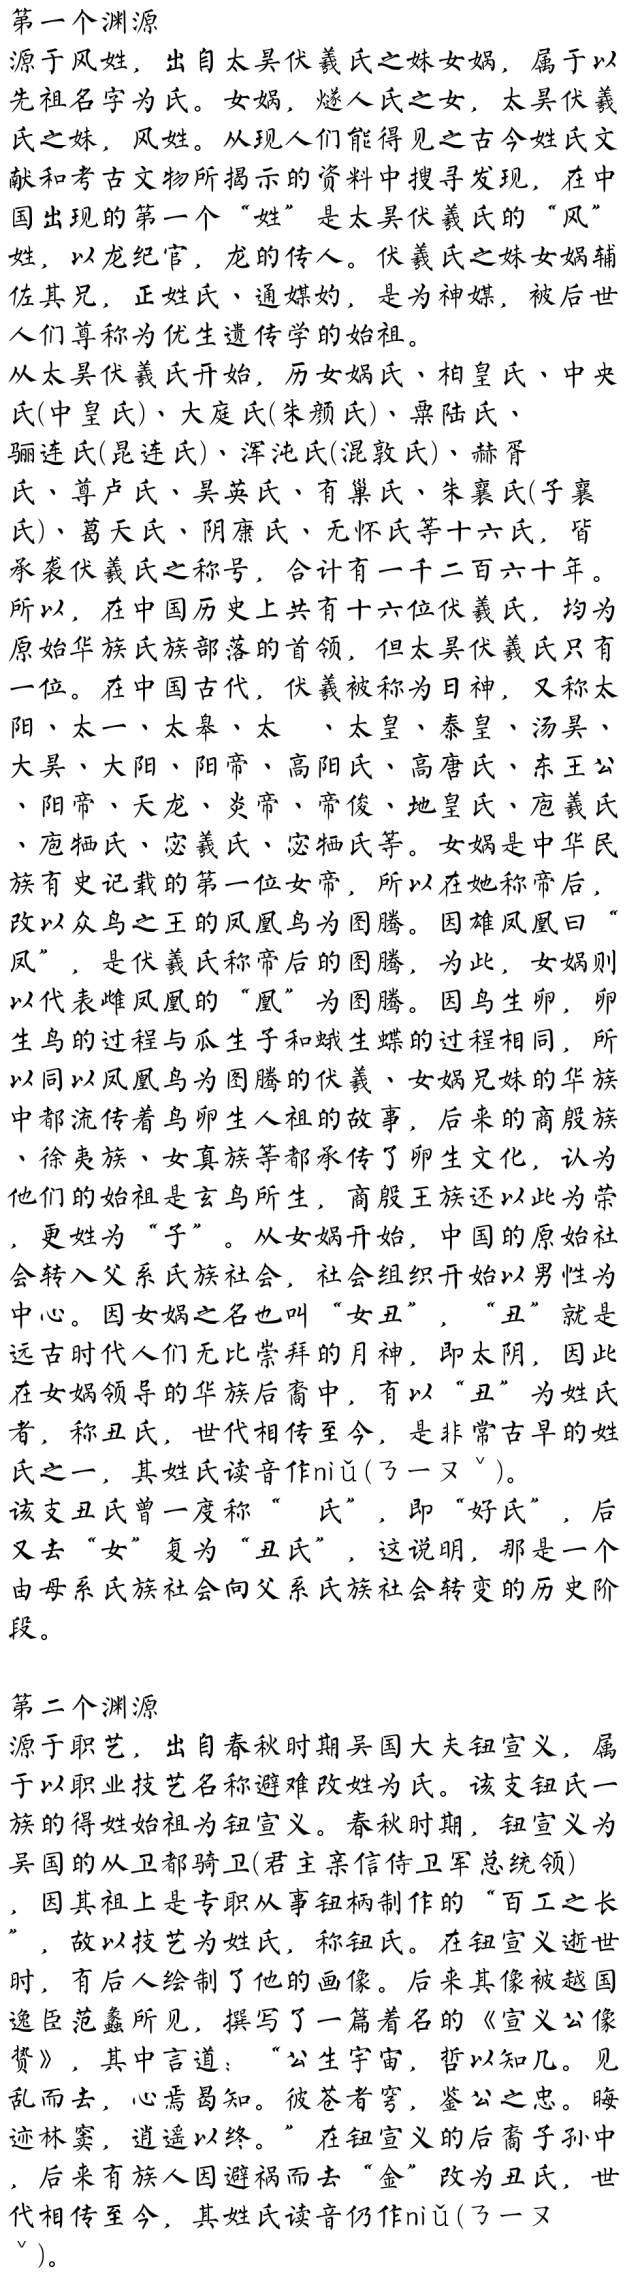 第一个渊源
源于风姓，出自太昊伏羲氏之妹女娲，属于以
先祖名字为氏。女娲，燧人氏之女，太昊伏羲
氏之妹，风姓。从现人们能得见之古今姓氏文
献和考古文物所揭示的资料中搜寻发现，在中
国出现的第一个“姓”是太昊伏羲氏的“风”
姓，以龙纪官，龙的传人。伏羲氏之妹女娲辅
佐其兄，正姓氏、通媒妁，是为神媒，被后世
人们尊称为优生遗传学的始祖。
从太昊伏羲氏开始，历女娲氏、柏皇氏、中央
氏(中皇氏)、大庭氏(朱颜氏)、粟陆氏、
骊连氏(昆连氏)、浑沌氏(混敦氏)、赫胥
氏、尊卢氏、昊英氏、有巢氏、朱襄氏(子襄
氏)、葛天氏、阴康氏、无怀氏等十六氏，皆
承袭伏羲氏之称号，合计有一千二百六十年。
所以，在中国历史上共有十六位伏羲氏，均为
原始华族氏族部落的首领，但太昊伏羲氏只有
一位。在中国古代，伏羲被称为日神，又称太
阳、太一、太皋、太　、太皇、泰皇、汤昊、
大昊、大阳、阳帝、高阳氏、高唐氏、东王公
、阳帝、天龙、炎帝、帝俊、地皇氏、庖羲氏
、庖牺氏、宓羲氏、宓牺氏等。女娲是中华民
族有史记载的第一位女帝，所以在她称帝后，
改以众鸟之王的凤凰鸟为图腾。因雄凤凰曰“
凤”，是伏羲氏称帝后的图腾，为此，女娲则
以代表雌凤凰的“凰”为图腾。因鸟生卵，卵
生鸟的过程与瓜生子和蛾生蝶的过程相同，所
以同以凤凰鸟为图腾的伏羲、女娲兄妹的华族
中都流传着鸟卵生人祖的故事，后来的商殷族
、徐夷族、女真族等都承传了卵生文化，认为
他们的始祖是玄鸟所生，商殷王族还以此为荣
，更姓为“子”。从女娲开始，中国的原始社
会转入父系氏族社会，社会组织开始以男性为
中心。因女娲之名也叫“女丑”，“丑”就是
远古时代人们无比崇拜的月神，即太阴，因此
在女娲领导的华族后裔中，有以“丑”为姓氏
者，称丑氏，世代相传至今，是非常古早的姓
氏之一，其姓氏读音作niǔ(ㄋㄧㄡˇ)。
该支丑氏曾一度称“　氏”，即“好氏”，后
又去“女”复为“丑氏”，这说明，那是一个
由母系氏族社会向父系氏族社会转变的历史阶
段。
第二个渊源
源于职艺，出自春秋时期吴国大夫钮宣义，属
于以职业技艺名称避难改姓为氏。该支钮氏一
族的得姓始祖为钮宣义。春秋时期，钮宣义为
吴国的从卫都骑卫(君主亲信侍卫军总统领)
，因其祖上是专职从事钮柄制作的“百工之长
”，故以技艺为姓氏，称钮氏。在钮宣义逝世
时，有后人绘制了他的画像。后来其像被越国
逸臣范蠡所见，撰写了一篇着名的《宣义公像
赞》，其中言道：“公生宇宙，哲以知几。见
乱而去，心焉曷知。彼苍者穹，鉴公之忠。晦
迹林窦，逍遥以终。”在钮宣义的后裔子孙中
，后来有族人因避祸而去“金”改为丑氏，世
代相传至今，其姓氏读音仍作niǔ(ㄋㄧㄡ
ˇ)。